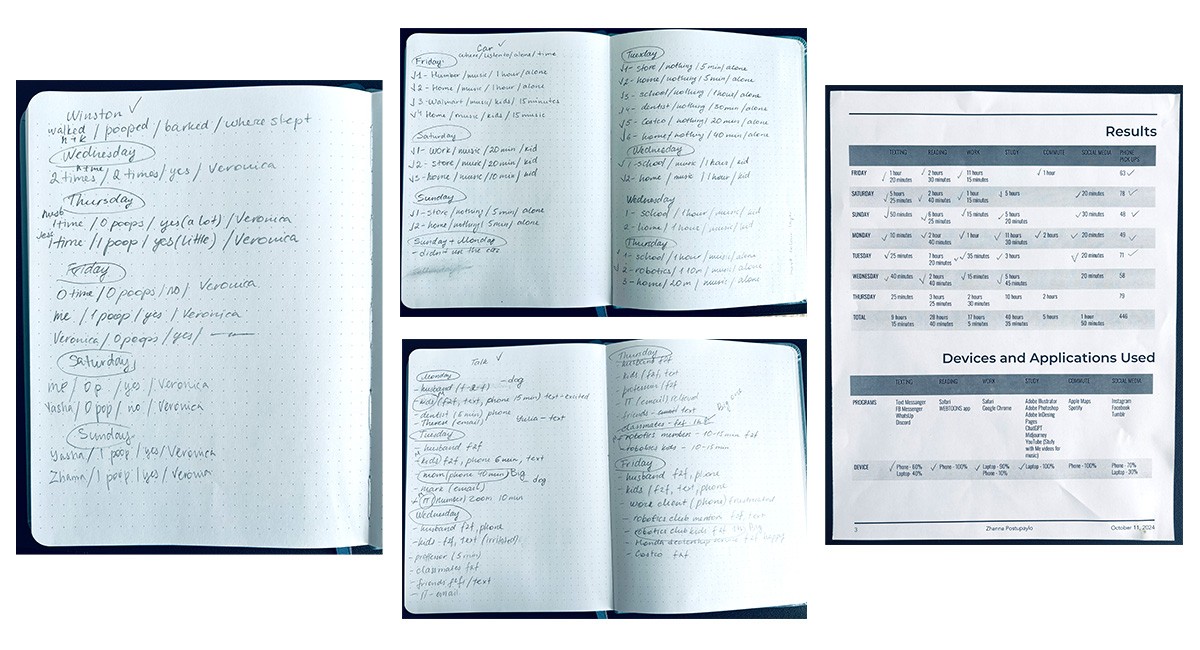 Winston ✓
walked / pooped / barked / where slept
Wednesday
2 times / 2 times / yes / Veronica
Thursday
1 time / 0 poops / yes (a lot) / Veronica
1 time / 1 poop / yes (little) / Veronica
Friday
0 time / 0 poops / no / Veronica
me / 1 poop / yes / Veronica
Veronica / 0 poops / yes / —
Saturday
me / 0 p / yes / Veronica
Yasha / 0 pop / no / Veronica
Sunday
Yasha / 1 poop / yes / Veronica
Zhanna / 1 poop / yes / Veronica
Car ✓
where / listen to / alone / time
Friday
√1 - Humber / music / 1 hour / alone
√2 - Home / music / 1 hour / alone
√3 - Walmart / music / kids / 15 minutes
√4 home / music / kids / 15 music
Saturday
√1 - work / music / 20 min / kid
√2 - Store / music / 20 min / kid
√3 - home / music / 10 min / kid
Sunday
√1 - store / nothing / 5 min / alone
√2 - home / nothing / 5 min / alone
Sunday + Monday
- didn't use the car
Tuesday
√1 - store / nothing / 5 min / alone
√2 - home / nothing / 5 min / alone
√3 - school / nothing / 1 hour / alone
√4 - dentist / nothing / 30 min / alone
√5 - Costco / nothing / 20 min / alone
√6 - home / nothing / 40 min / alone
Wednesday
√1 - school / music / 1 hour / kid
√2 - home / music / 1 hour / kid
Wednesday
1 - school / 1 hour / music / kid
2 - home / 1 hour / music / kid
Thursday
1 - school / 1 hour / music / alone
2 - robotics / 1 10m / music / alone
3 - home / 20 m / music / alone
Talk ✓
Monday
- husband (f2f) - dog
- kids (f2f, text, phone 15 min) text - excited
- dentist (5 min) phone
- (email) Yulia - text
Tuesday
- husband f2f
- kids f2f, phone 6 min, text
- mom / phone 40 min Big dog
- mark (email)
+ IT (Humber) Zoom 10 min
Wednesday
- husband f2f, phone
- kids - f2f, text (irritated)
- professor (5 min)
- classmates f2f
- friends f2f / text
- IT - email
Thursday
- husband f2f
- kids / f2f, text
- professor / f2f
- IT (email)
- friends - text
- classmates - f2f
- robotics member - 10-15 min f2f
- robotics kids - 10-15 min
Friday
- husband f2f, phone
- kids / f2f, text, phone
- work client (phone) frustrated
- robotics club mentor f2f, text
- robotics club kids f2f
- Honda dealership f2f
- Costco f2f
Results
TEXTING READING WORK STUDY COMMUTE SOCIAL MEDIA PHONE PICK UPS
FRIDAY 1 hour 20 minutes 2 hours 30 minutes 11 hours 15 minutes 1 hour 63
SATURDAY 5 hours 25 minutes 2 hours 40 minutes 1 hour 15 minutes 5 hours 20 minutes 78
SUNDAY 50 minutes 6 hours 25 minutes 15 minutes 5 hours 20 minutes 30 minutes 48
MONDAY 10 minutes 2 hour 40 minutes 1 hour 11 hours 30 minutes 2 hours 20 minutes 49
TUESDAY 25 minutes 7 hours 20 minutes 35 minutes 3 hours 20 minutes 71
WEDNESDAY 40 minutes 2 hours 40 minutes 15 minutes 5 hours 45 minutes 20 minutes 58
THURSDAY 25 minutes 3 hours 25 minutes 2 hours 30 minutes 10 hours 2 hours 79
TOTAL 9 hours 15 minutes 28 hours 40 minutes 17 hours 5 minutes 40 hours 35 minutes 5 hours 1 hour 50 minutes 446
Devices and Applications Used
TEXTING READING WORK STUDY COMMUTE SOCIAL MEDIA
PROGRAMS Text Messenger Safari Safari Adobe Illustrator Apple Maps Instagram
FB Messenger WEBTOONS app Google Chrome Adobe Photoshop Spotify Facebook
WhatsUp Adobe InDesing Tumblr
Discord Pages
ChatGPT
Midjourney
YouTube (Study
with Me videos for
music)
DEVICE Phone - 60% Phone - 100% Laptop - 90% Laptop - 100% Phone - 100% Phone - 70%
Laptop - 40% Phone - 10% Laptop - 30%
3 Zhanna Postupaylo October 11, 2024